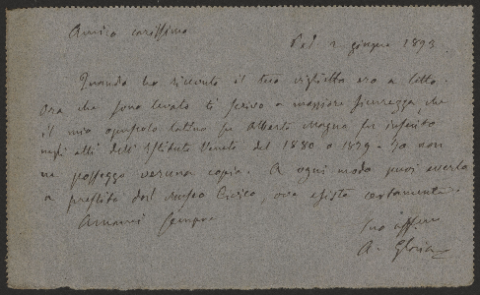 Amico carissimo
Pad. 2 giugno 1893
Quando ho ricevuto il tuo viglietto ero a letto.
Ora che sono levato ti scrivo a maggiore sicurezza che
il mio opuscolo latino su Alberto Magno fu inserito
negli atti dell'Istituto Veneto del 1880 o 1879. Io non
ne posseggo veruna copia. A ogni modo puoi averlo
a prestito dal Museo Civico, ove esiste certamente.
Amami sempre
Tuo aff.mo
A. Gloria